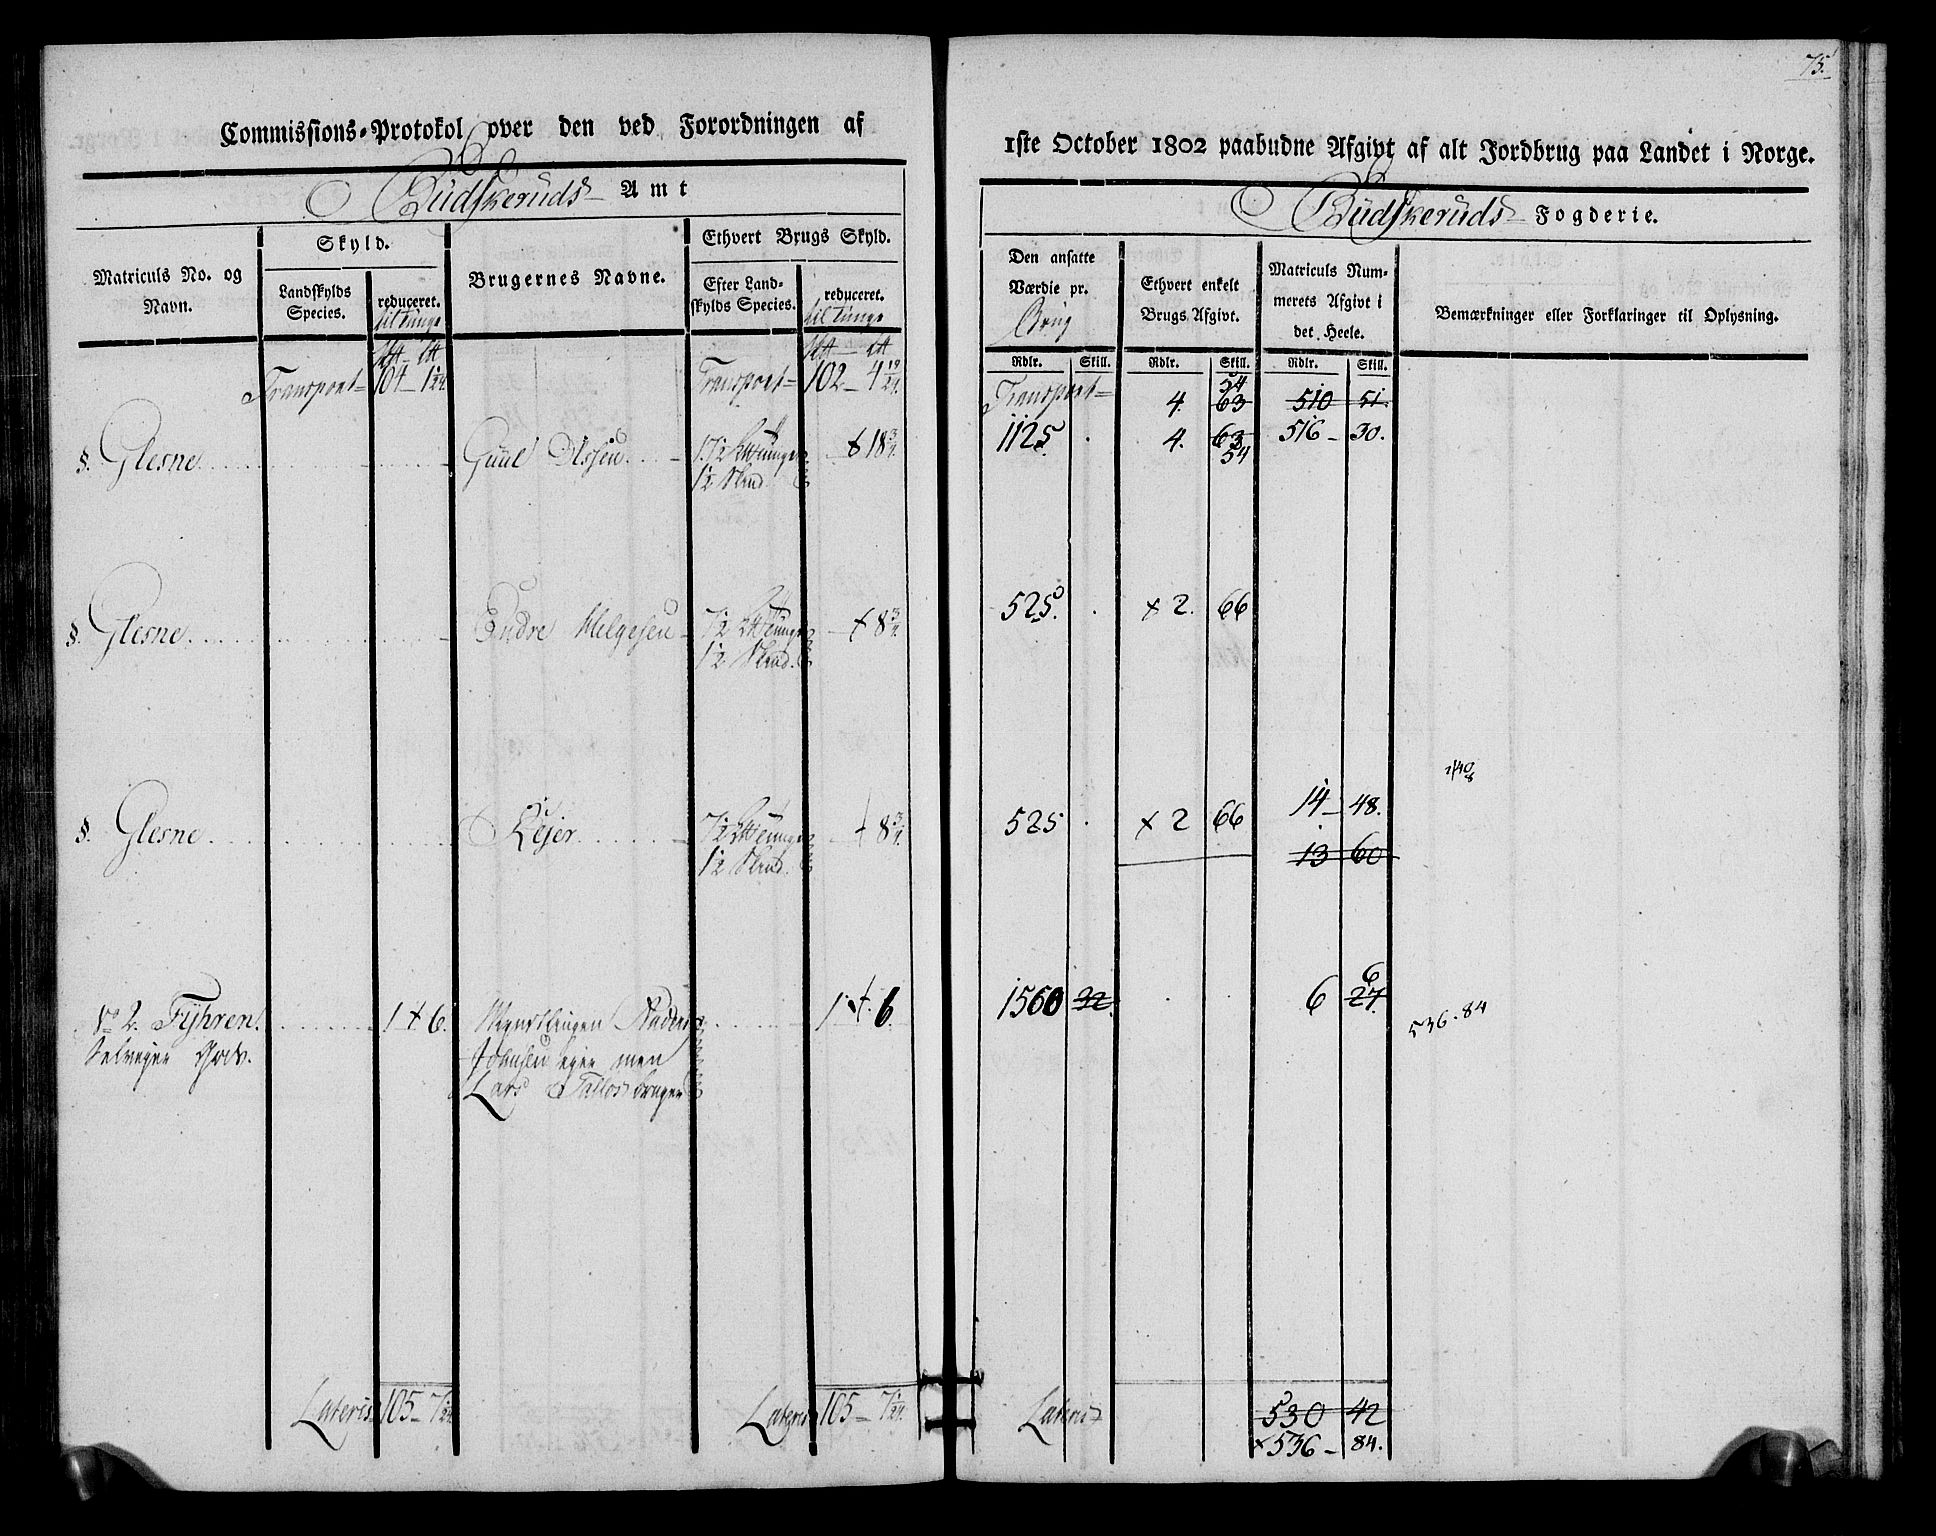 75.
Commissions-Protokol over den ved Forordningen af
1ste October 1802 paabudne Afgivt af alt Jordbrug paa Landet i Norge.
Budskeruds Amt
Budskeruds Fogderie.
Matriculs No. og Navn.
Skyld.
Landskylds Species.
reduceret.
til Tunge
Brugernes Navne.
Ethvert Brugs Skyld.
Efter Land-
skylds Species.
reduceret.
til Tunge
Den ansatte
Værdie pr.
Brug
Ethvert enkelt
Brugs Afgivt.
Matriculs Num-
merets Afgivt i
det Heele.
Bemærkninger eller Forklaringer til Oplysning.
Rdlr. Skill. Rdlr. Skill. Rdlr. Skill.
Transport 104 - 1 1/24 Transport 102 - 4 19/24 Transport 4. 63 54 510 51.
§. Glesne Guul Olsen 1 1/2 Tunge 1/2 Hud + 18 3/4 1125. 4. 63 54 516 - 30.
§. Glesne Endre Helgesen 1/2 Tunge 1/2 Hud. + 8 3/4 525. + 2. 66
1/40
§. Glesne Lejer 1/2 Tunge 1/2 Hud. + 8 3/4 525 + 2 66 14 - 48.
13 60
No 2. Fyhren. 1 + 6. Anders 1 + 6. 1560 32. 6 27. 6
Selveyer Gods. Johnsen eyer men 536.84
Lars bruger
Lateris 105 - 7 1/24 Lateris 105 - 7 1/24. Lateris 530 42
+ 536 - 84.